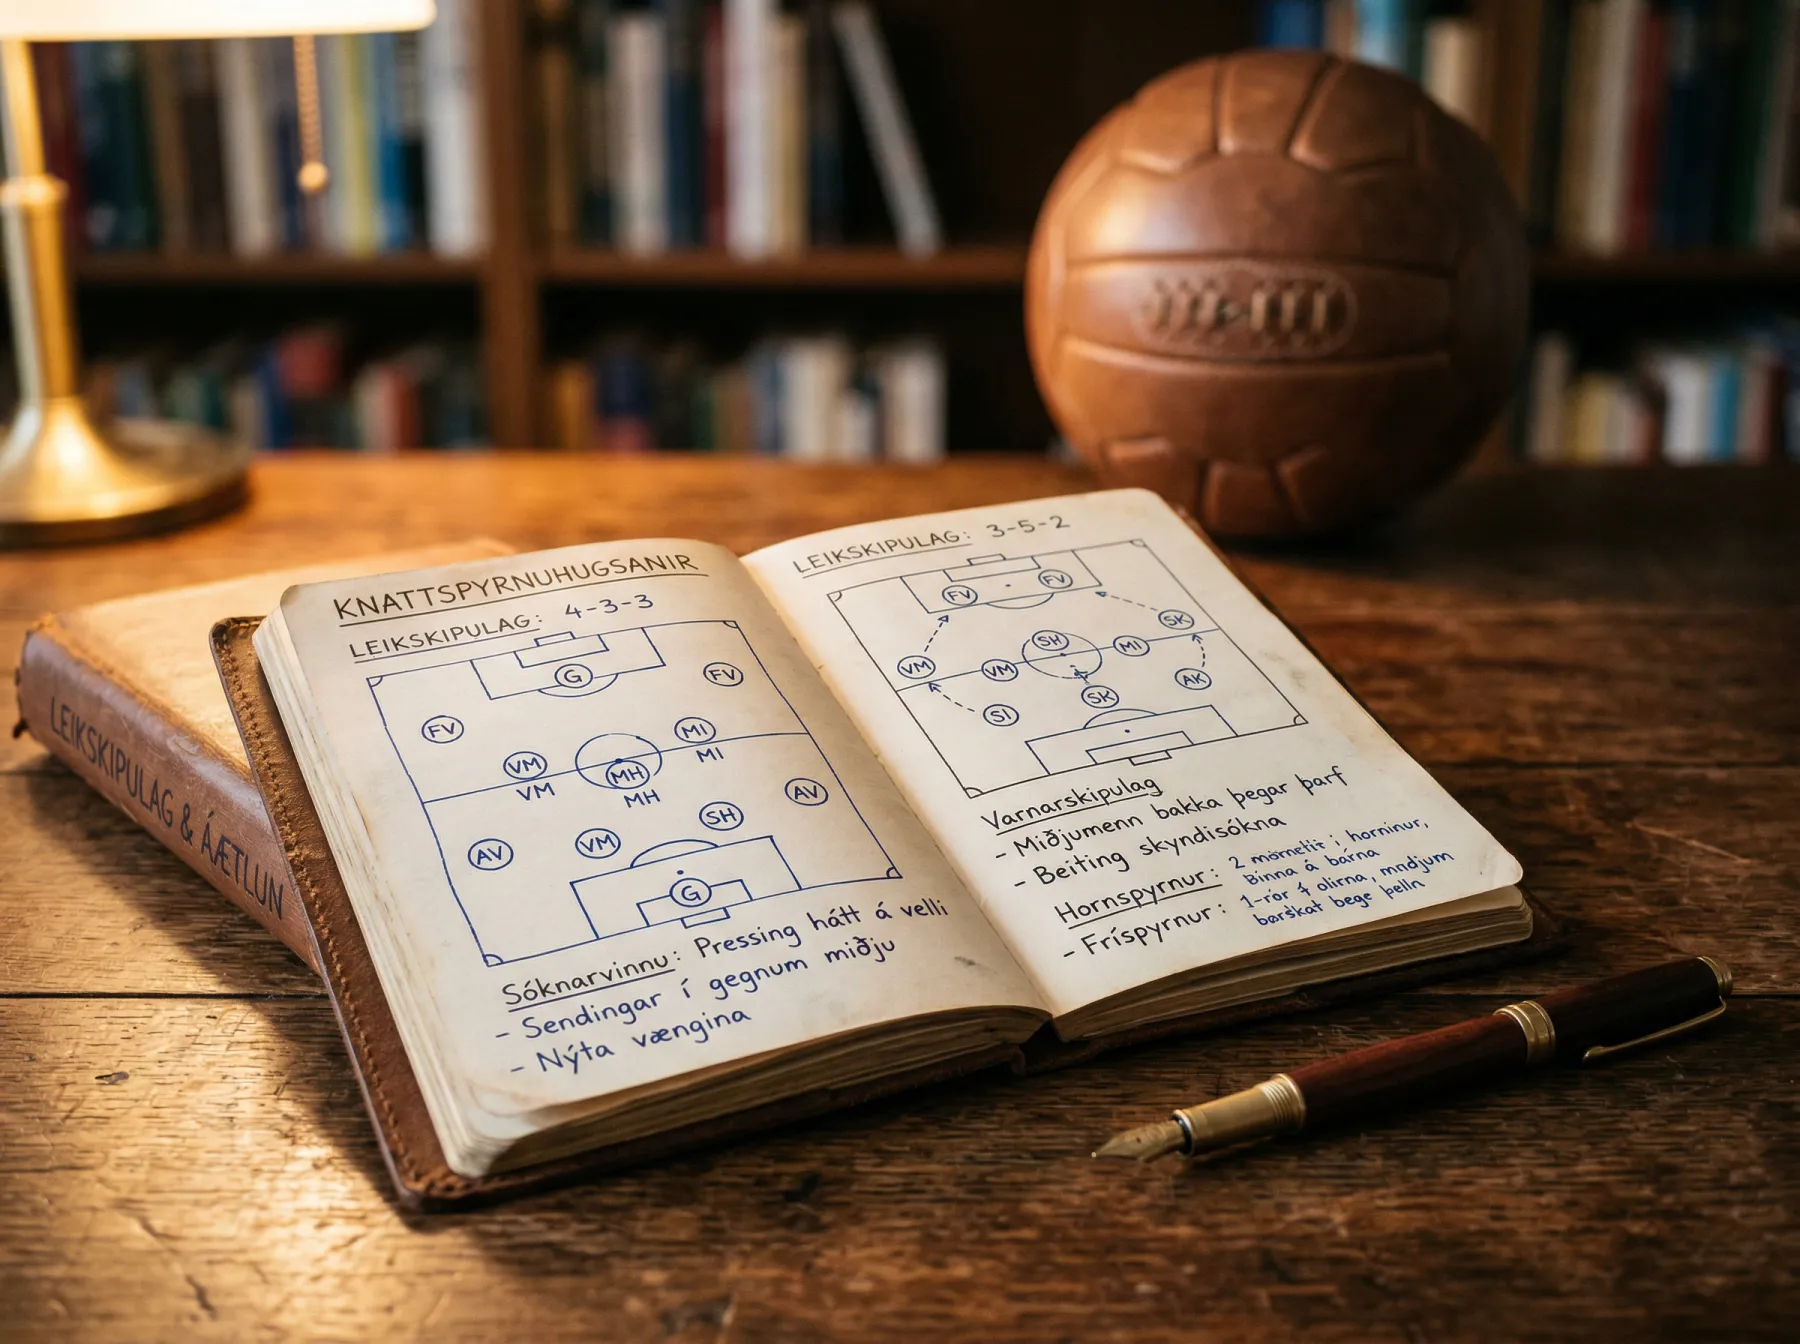 KNATTSPYRNUHUGSANIR
LEIKSKIPULAG: 4-3-3
G
FV
FV
MI
MI
VM
VM
MH
MH
AV
SH
VM
AV
G
Sóknarvinnu: Pressing hátt á velli
- Sendingar í gegnum miðju
- Nýta vængina
LEIKSKIPULAG: 3-5-2
FV
FV
SK
SH
MI
VM
VM
AK
SK
SI
Varnarskipulag
- Miðjumenn bakka þegar þarf
- Beiting skyndisókna
Hornspyrnur: 2 í horninur,
Binna á bárna
- Fríspyrnur: 1-rór olirna, mndjum
bege þelln
LEIKSKIPULAG & ÁÆTLUN